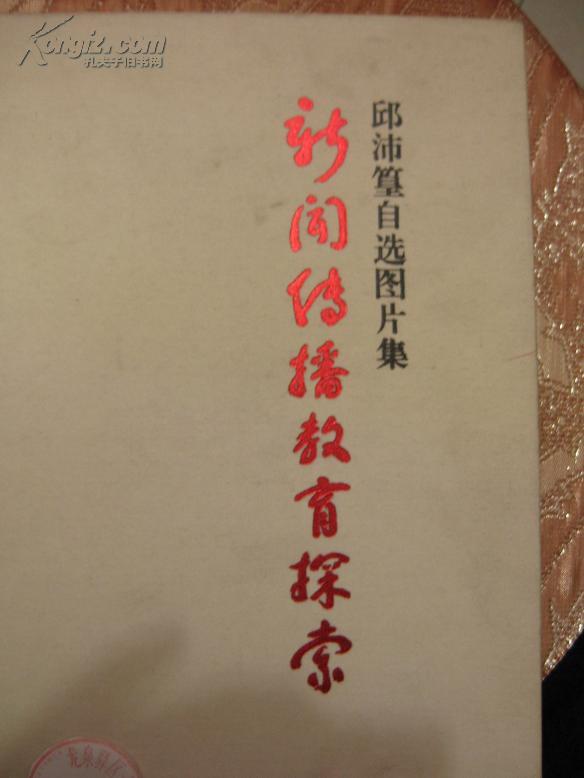 Kongfz.com
孔夫子旧书网
邱沛篁自选图片集
新闻传播教育探索